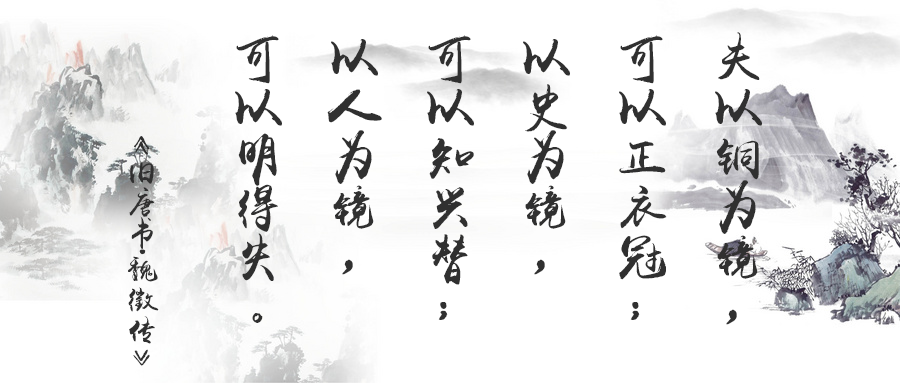 夫以铜为镜，
可以正衣冠；
以史为镜，
可以知兴替；
以人为镜，
可以明得失。
《旧唐书·魏徵传》